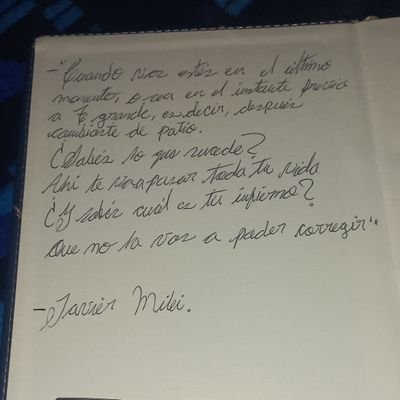 -"Cuando vos estés en el último
momento, o sea en el instante previo
a grande, es decir, después
cambiaste de patio.
¿Sabés lo que sucede?
Ahí te va a pasar toda tu vida
¿Y sabés cuál es tu infierno?
Que no la vas a poder corregir"
-Javier Milei.